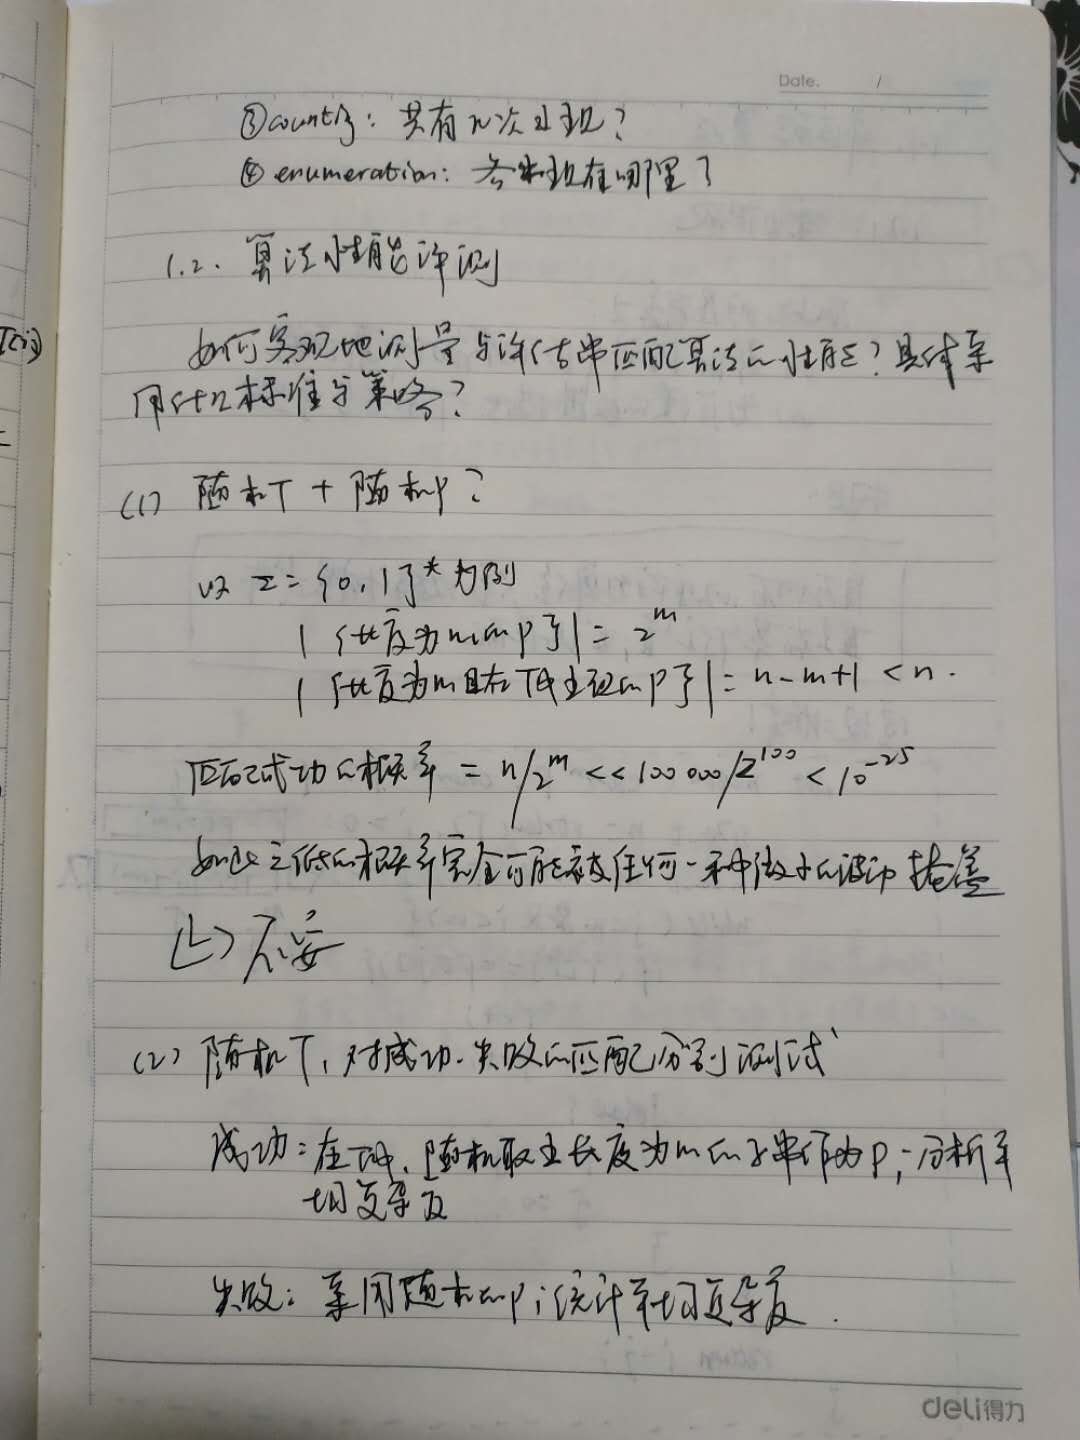 Date. /
③ counting: 共有几次出现?
④ enumeration: 各出现在哪里?
1.2. 算法性能评测
如何客观地测量与评估串匹配算法的性能?具体采
用什么标准与策略?
(1) 随机T + 随机P?
以 Σ = {0,1}* 为例
|{长度为m的P}| = 2^m
|{长度为m且在T中出现的P}| = n-m+1 < n.
匹配成功的概率 = n/2^m << 100 000/2^100 < 10^-25
如此之低的概率完全可能被任何一种微小的波动掩盖
不妥
(2) 随机T,对成功、失败的匹配分别测试
成功:在T中,随机取出长度为m的子串作为P;分析平
均复杂度
失败:采用随机的P;统计平均复杂度.
deli得力